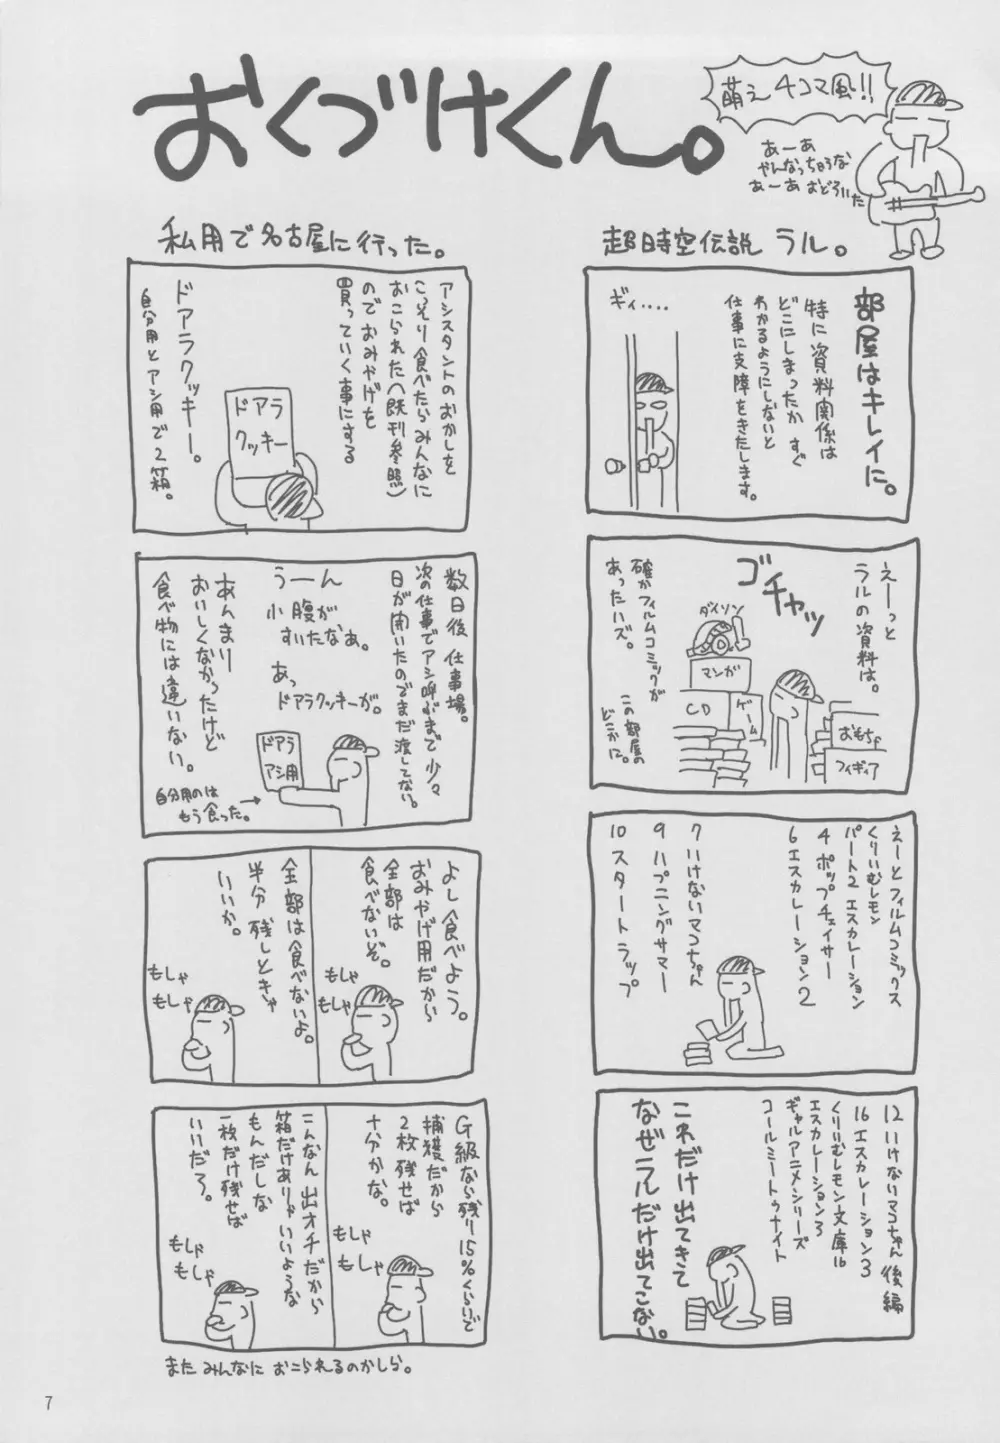 おくづけくん。
萌え4コマ風!!
あーあ
やんなっちゃうな
あーあ おどろいた
超時空伝説 ラル。
部屋はキレイに。
特に資料関係は
どこにしまったか すぐ
わかるようにしないと
仕事に支障をきたします。
ギィ....
えーっと
ラルの資料は。
ゴチャッ
ダイソン
マンガ
CD
ゲーム
おもちゃ
フィギィア
確かフィルムコミックが
あったハズ。
この部屋の
どこかに。
えーとフィルムコミックス
くりぃむレモン
パート2 エスカレーション
4 ポップチェイサー
6 エスカレーション2
7 いけないマコちゃん
9 ハプニングサマー
10 スタートラップ
12 いけないマコちゃん 後編
16 エスカレーション3
くりぃむレモン文庫16
エスカレーション3
ギャルアニメシリーズ
コールミートゥナイト
これだけ出てきて
なぜラルだけ出てこない。
私用で名古屋に行った。
アシスタントのおかしを
こっそり食べたらみんなに
おこられた(既刊参照)
ので おみやげを
買っていく事にする
ドアラ
クッキー
ドアラクッキー。
自分用とアシ用で2箱。
数日後 仕事場。
次の仕事でアシ呼ぶまで少々
日が開いたのでまだ渡してない。
うーん
小腹が
すいたなぁ。
あっ
ドアラクッキーが。
ドアラ
アシ用
あんまり
おいしくなかったけど
食べ物には違いない。
自分用のは
もう食った。→
よし食べよう。
おみやげ用だから
全部は
食べないぞ。
もしゃ
もしゃ
全部は食べないよ。
半分 残しときゃ
いいか。
もしゃ
もしゃ
G級なら残り15%くらいで
捕獲だから
2枚残せば
十分かな。
もしゃ
もしゃ
こんなん 出オチだから
箱だけありゃいいような
もんだしな
一枚だけ残せば
いいだろ。
もしゃ
もしゃ
また みんなに おこられるのかしら。
7